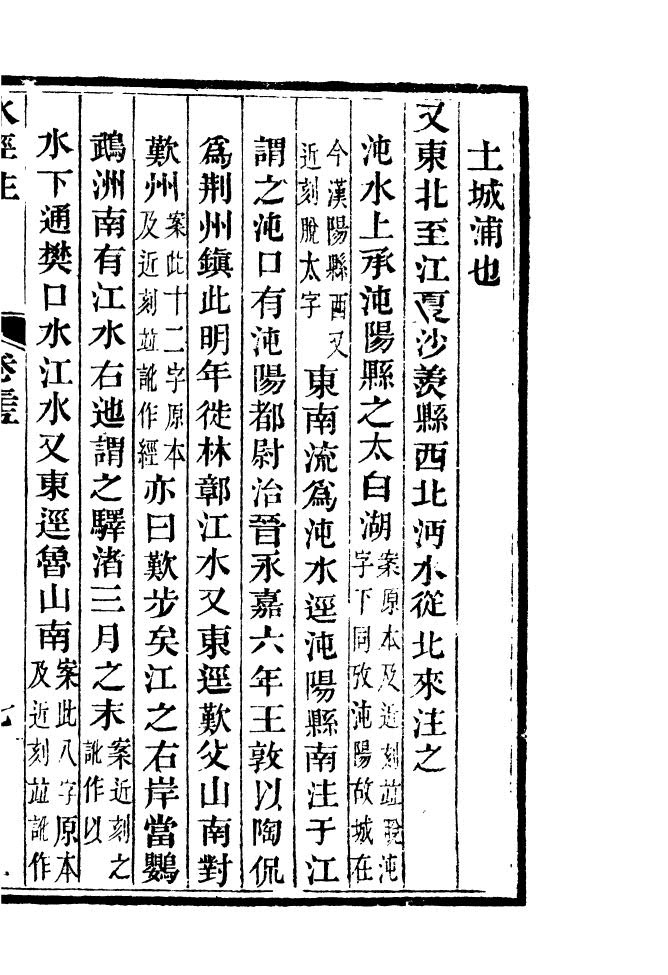 土城浦也
又東北至江夏沙羨縣西北沔水從北來注之
沌水上承沌陽縣之太白湖案原本及近刻並脫沌字下同攷沌陽故城在
今漢陽縣西又近刻脫太字東南流爲沌水逕沌陽縣南注于江
謂之沌口有沌陽都尉治晉永嘉六年王敦以陶侃
爲荆州鎮此明年徙林鄣江水又東逕歎父山南對
歎州案此十二字原本及近刻並訛作經亦曰歎步矣江之右岸當鸚
鵡洲南有江水右迆謂之驛渚三月之末案近刻之訛作以
水下通樊口水江水又東逕魯山南案此八字原本及近刻並訛作
水經注 卷三十五 七